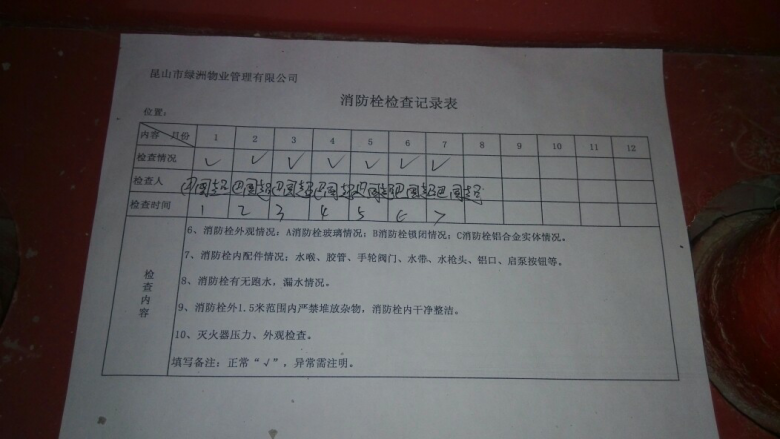 昆山市绿洲物业管理有限公司
消防栓检查记录表
位置：
内容 月份 1 2 3 4 5 6 7 8 9 10 11 12
检查情况 ✓ ✓ ✓ ✓ ✓ ✓ ✓
检查人
检查时间 1 2 3 4 5 6 7
检查内容
6、消防栓外观情况：A消防栓玻璃情况；B消防栓锁闭情况；C消防栓铝合金实体情况。
7、消防栓内配件情况：水喉、胶管、手轮阀门、水带、水枪头、铝口、启泵按钮等。
8、消防栓有无跑水，漏水情况。
9、消防栓外1.5米范围内严禁堆放杂物，消防栓内干净整洁。
10、灭火器压力、外观检查。
填写备注：正常“√”，异常需注明。